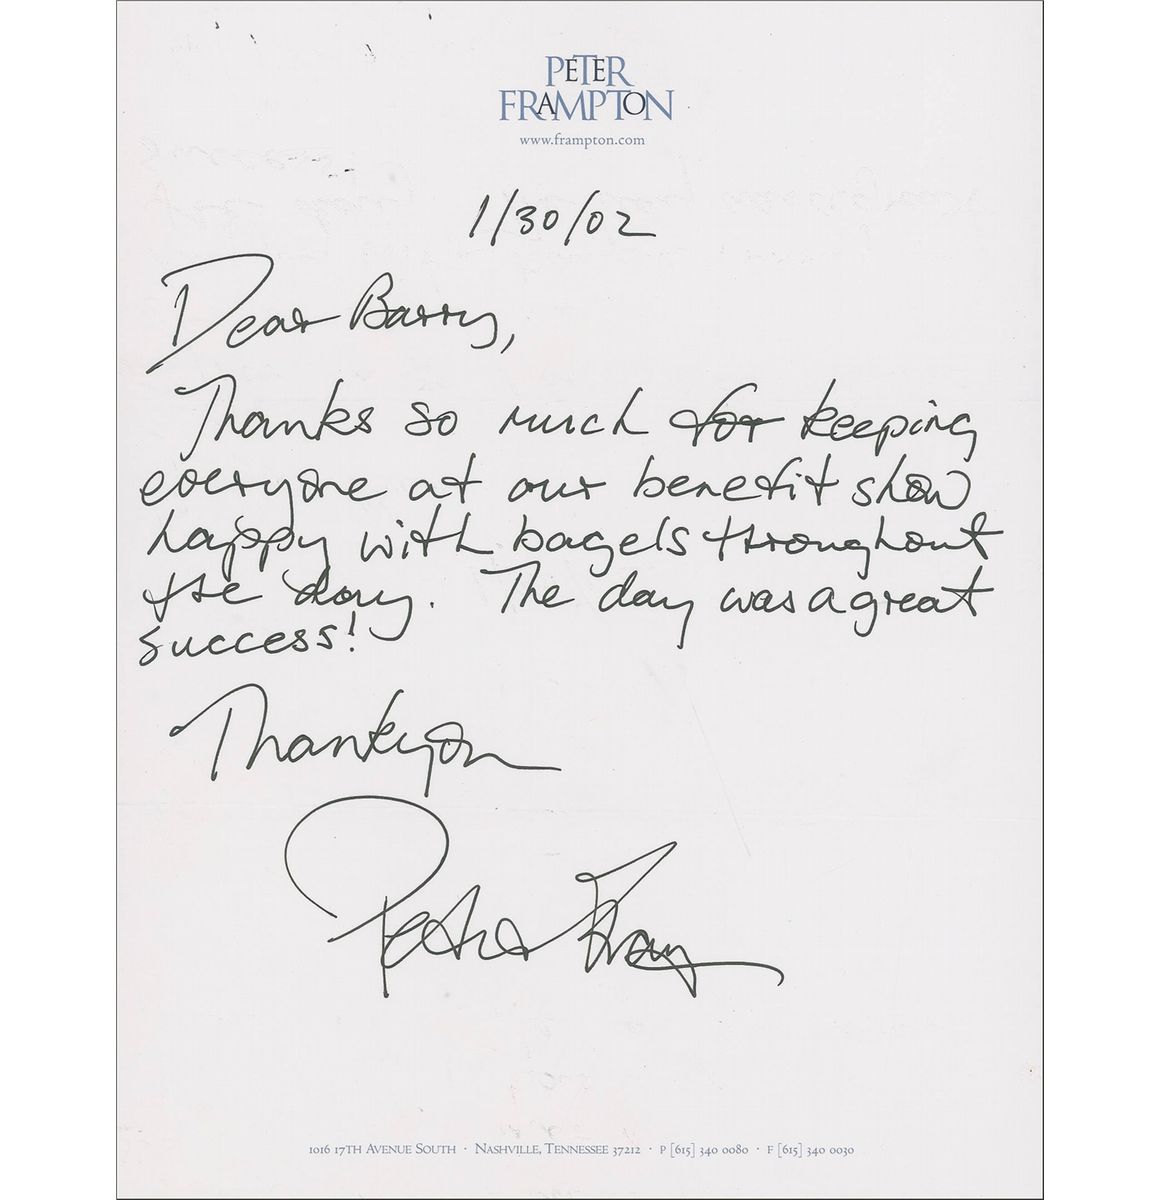 PETER
FRAMPTON
www.frampton.com
1/30/02
Dear Barry,
Thanks so much for keeping
everyone at our benefit show
happy with bagels throughout
the day. The day was a great
success!
Thankyou
Peter Framp
1016 17TH AVENUE SOUTH · NASHVILLE, TENNESSEE 37212 · P [615] 340 0080 · F [615] 340 0030